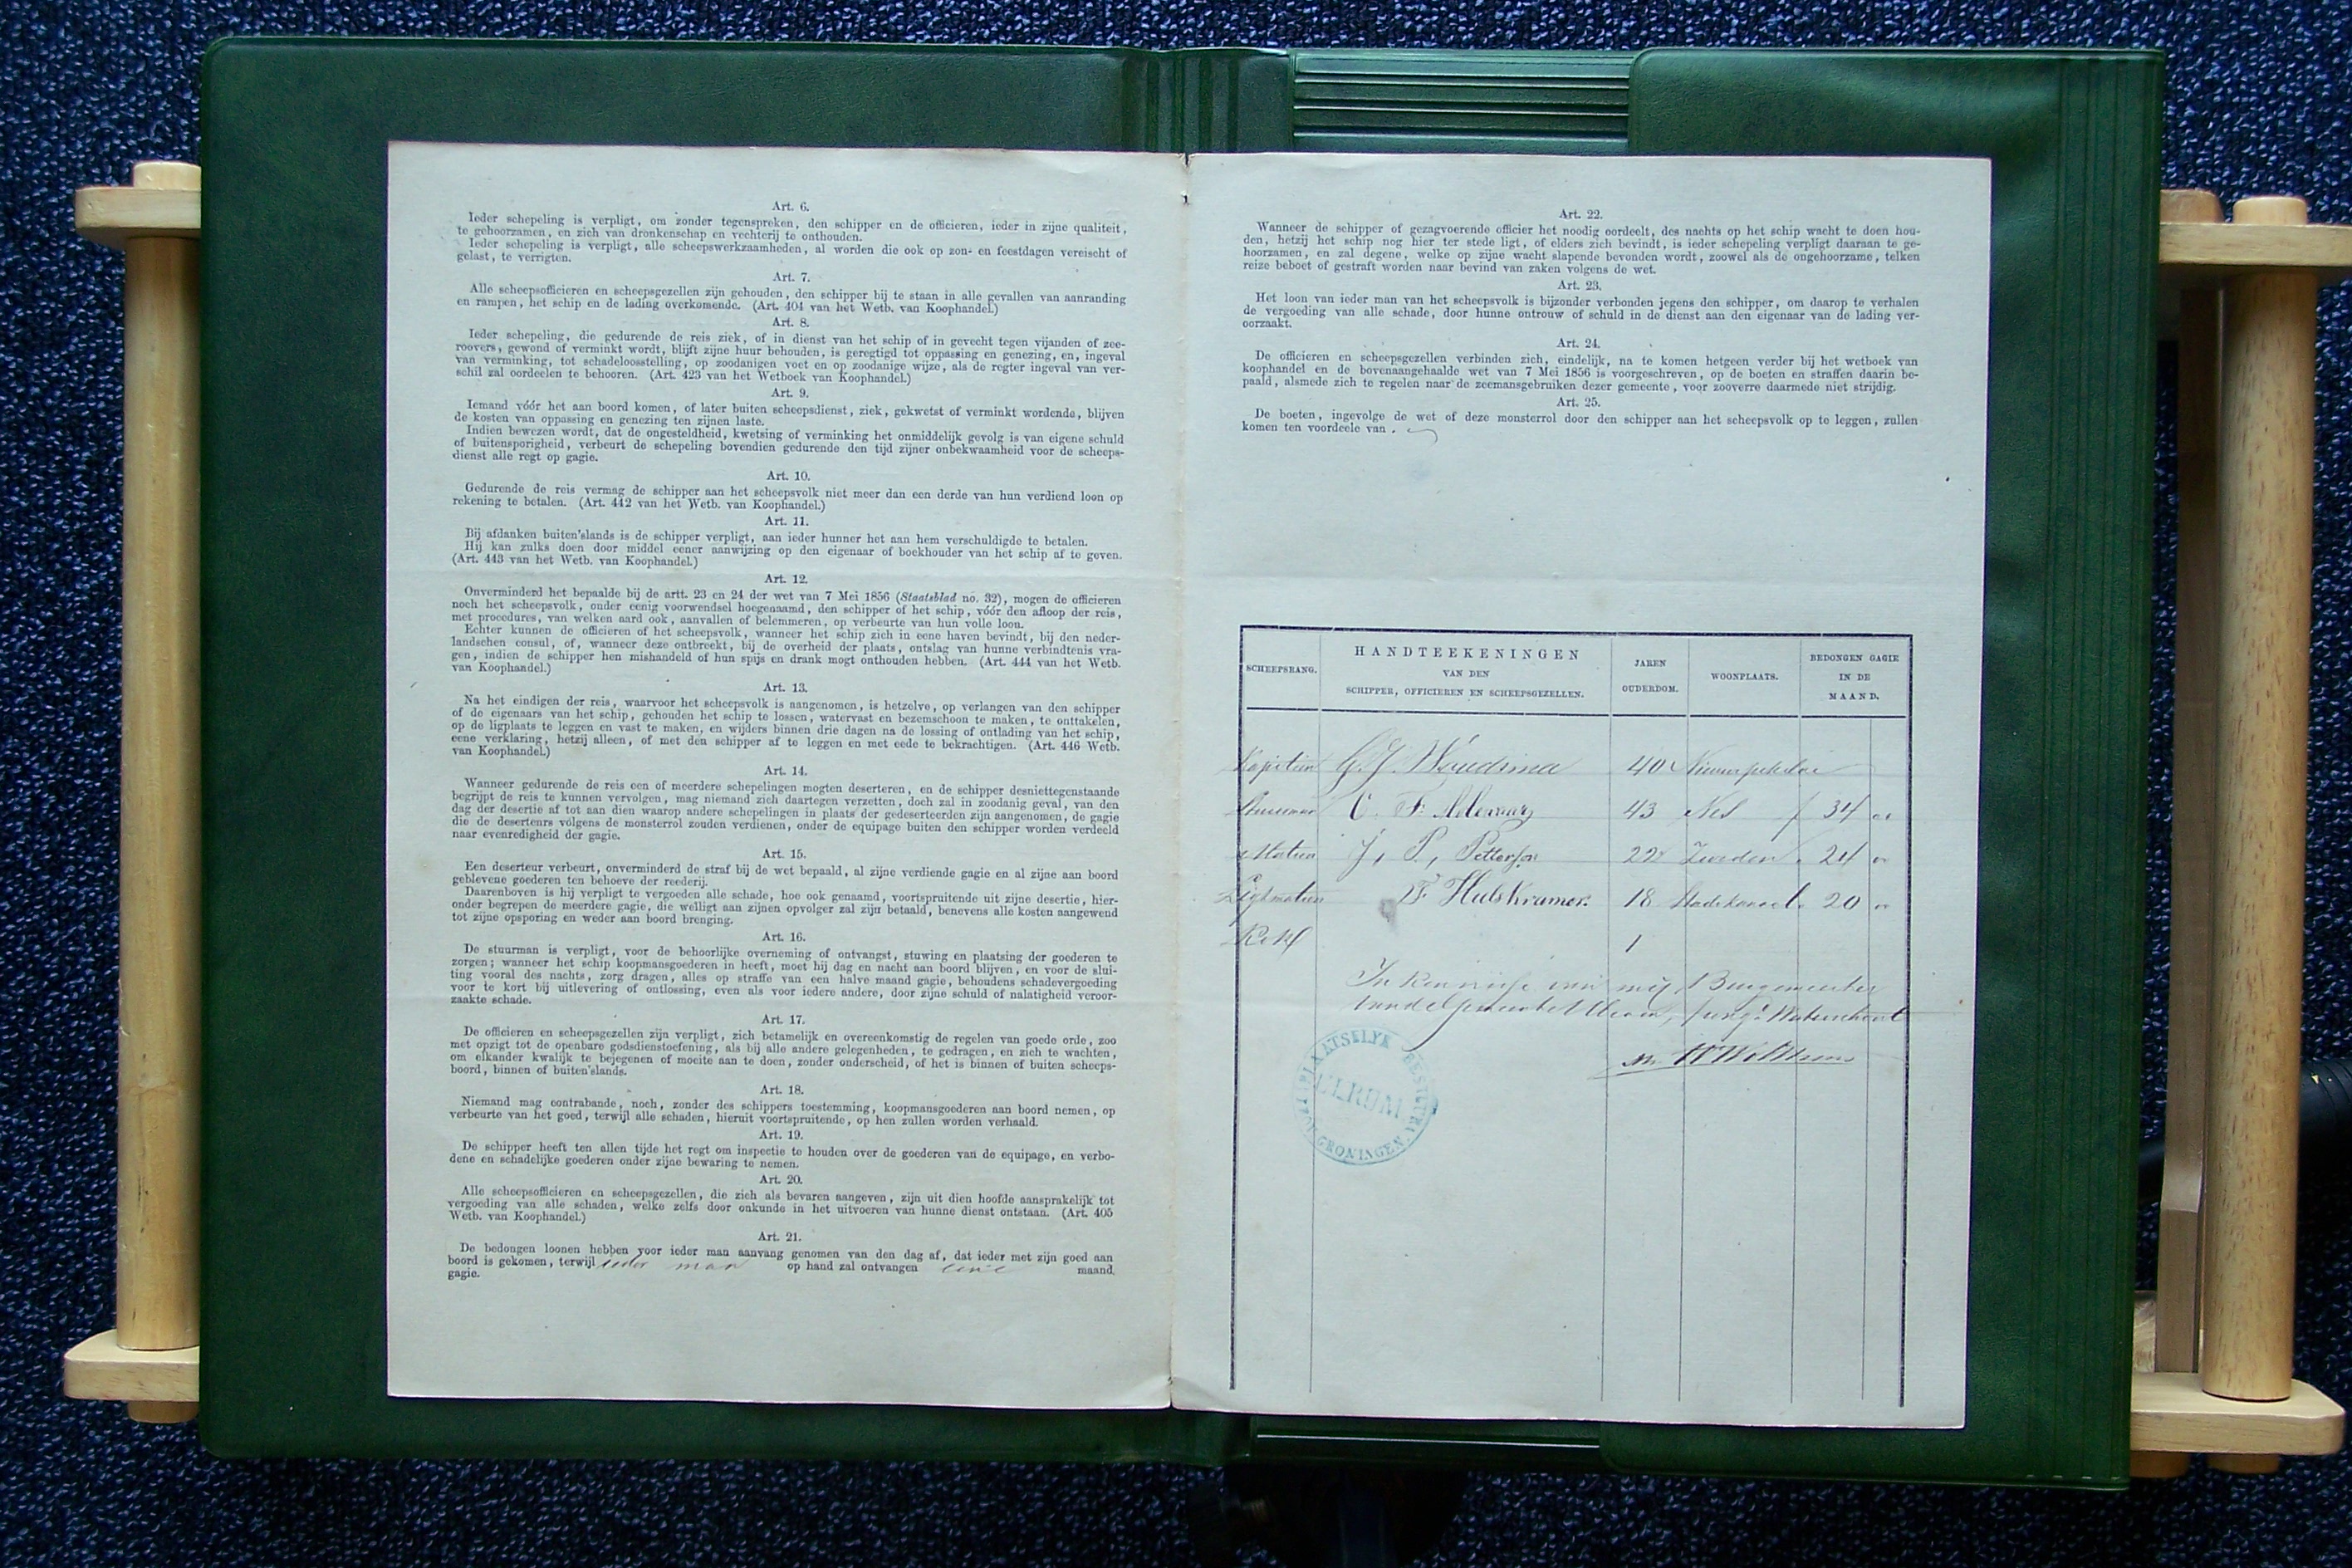 Art. 6.
Ieder schepeling is verpligt, om zonder tegenspreken, den schipper en de officieren, ieder in zijne qualiteit,
te gehoorzamen, en zich van dronkenschap en vechterij te onthouden.
Ieder schepeling is verpligt, alle scheepswerkzaamheden, al worden die ook op zon- en feestdagen vereischt of
gelast, te verrigten.
Art. 7.
Alle scheepsofficieren en scheepsgezellen zijn gehouden, den schipper bij te staan in alle gevallen van aanranding
en rampen, het schip en de lading overkomende. (Art. 404 van het Wetb. van Koophandel.)
Art. 8.
Ieder schepeling, die gedurende de reis ziek, of in dienst van het schip of in gevecht tegen vijanden of zee-
roovers, gewond of verminkt wordt, blijft zijne huur behouden, is geregtigd tot oppassing en genezing, en, ingeval
van verminking, tot schadeloosstelling, op zoodanigen voet en op zoodanige wijze, als de regter ingeval van ver-
schil zal oordeelen te behooren. (Art. 423 van het Wetboek van Koophandel.)
Art. 9.
Iemand vóór het aan boord komen, of later buiten scheepsdienst, ziek, gekwetst of verminkt wordende, blijven
de kosten van oppassing en genezing ten zijnen laste.
Indien bewezen wordt, dat de ongesteldheid, kwetsing of verminking het onmiddelijk gevolg is van eigene schuld
of buitensporigheid, verbeurt de schepeling bovendien gedurende den tijd zijner onbekwaamheid voor de scheeps-
dienst alle regt op gagie.
Art. 10.
Gedurende de reis vermag de schipper aan het scheepsvolk niet meer dan een derde van hun verdiend loon op
rekening te betalen. (Art. 442 van het Wetb. van Koophandel.)
Art. 11.
Bij afdanken buiten'slands is de schipper verpligt, aan ieder hunner het aan hem verschuldigde te betalen.
Hij kan zulks doen door middel eener aanwijzing op den eigenaar of boekhouder van het schip af te geven.
(Art. 443 van het Wetb. van Koophandel.)
Art. 12.
Onverminderd het bepaalde bij de artt. 23 en 24 der wet van 7 Mei 1856 (Staatsblad no. 32), mogen de officieren
noch het scheepsvolk, onder eenig voorwendsel hoegenaamd, den schipper of het schip, vóór den afloop der reis,
met procedures, van welken aard ook, aanvallen of belemmeren, op verbeurte van hun volle loon.
Echter kunnen de officieren of het scheepsvolk, wanneer het schip zich in eene haven bevindt, bij den neder-
landschen consul, of, wanneer deze ontbreekt, bij de overheid der plaats, ontslag van hunne verbindtenis vra-
gen, indien de schipper hen mishandeld of hun spijs en drank mogt onthouden hebben. (Art. 444 van het Wetb.
van Koophandel.)
Art. 13.
Na het eindigen der reis, waarvoor het scheepsvolk is aangenomen, is hetzelve, op verlangen van den schipper
of de eigenaars van het schip, gehouden het schip te lossen, watervast en bezemschoon te maken, te onttakelen,
op de ligplaats te leggen en vast te maken, en wijders binnen drie dagen na de lossing of ontlading van het schip,
eene verklaring, hetzij alleen, of met den schipper af te leggen en met eede te bekrachtigen. (Art. 446 Wetb.
van Koophandel.)
Art. 14.
Wanneer gedurende de reis een of meerdere schepelingen mogten deserteren, en de schipper desniettegenstaande
begrijpt de reis te kunnen vervolgen, mag niemand zich daartegen verzetten, doch zal in zoodanig geval, van den
dag der desertie af tot aan dien waarop andere schepelingen in plaats der gedeserteerden zijn aangenomen, de gagie
die de deserteurs volgens de monsterrol zouden verdienen, onder de equipage buiten den schipper worden verdeeld
naar evenredigheid der gagie.
Art. 15.
Een deserteur verbeurt, onverminderd de straf bij de wet bepaald, al zijne verdiende gagie en al zijne aan boord
geblevene goederen ten behoeve der reederij.
Daarenboven is hij verpligt te vergoeden alle schade, hoe ook genaamd, voortspruitende uit zijne desertie, hier-
onder begrepen de meerdere gagie, die welligt aan zijnen opvolger zal zijn betaald, benevens alle kosten aangewend
tot zijne opsporing en weder aan boord brenging.
Art. 16.
De stuurman is verpligt, voor de behoorlijke overneming of ontvangst, stuwing en plaatsing der goederen te
zorgen; wanneer het schip koopmansgoederen in heeft, moet hij dag en nacht aan boord blijven, en voor de slui-
ting vooral des nachts, zorg dragen, alles op straffe van een halve maand gagie, behoudens schadevergoeding
voor te kort bij uitlevering of ontlossing, even als voor iedere andere, door zijne schuld of nalatigheid veroor-
zaakte schade.
Art. 17.
De officieren en scheepsgezellen zijn verpligt, zich betamelijk en overeenkomstig de regelen van goede orde, zoo
met opzigt tot de openbare godsdienstoefening, als bij alle andere gelegenheden, te gedragen, en zich te wachten,
om elkander kwalijk te bejegenen of moeite aan te doen, zonder onderscheid, of het is binnen of buiten scheeps-
boord, binnen of buiten'slands.
Art. 18.
Niemand mag contrabande, noch, zonder des schippers toestemming, koopmansgoederen aan boord nemen, op
verbeurte van het goed, terwijl alle schaden, hieruit voortspruitende, op hen zullen worden verhaald.
Art. 19.
De schipper heeft ten allen tijde het regt om inspectie te houden over de goederen van de equipage, en verbo-
dene en schadelijke goederen onder zijne bewaring te nemen.
Art. 20.
Alle scheepsofficieren en scheepsgezellen, die zich als bevaren aangeven, zijn uit dien hoofde aansprakelijk tot
vergoeding van alle schaden, welke zelfs door onkunde in het uitvoeren van hunne dienst ontstaan. (Art. 405
Wetb. van Koophandel.)
Art. 21.
De bedongen loonen hebben voor ieder man aanvang genomen van den dag af, dat ieder met zijn goed aan
boord is gekomen, terwijl ieder man op hand zal ontvangen eene maand.
gagie.
Art. 22.
Wanneer de schipper of gezagvoerende officier het noodig oordeelt, des nachts op het schip wacht te doen hou-
den, hetzij het schip nog hier ter stede ligt, of elders zich bevindt, is ieder schepeling verpligt daaraan te ge-
hoorzamen, en zal degene, welke op zijne wacht slapende bevonden wordt, zoowel als de ongehoorzame, telken
reize beboet of gestraft worden naar bevind van zaken volgens de wet.
Art. 23.
Het loon van ieder man van het scheepsvolk is bijzonder verbonden jegens den schipper, om daarop te verhalen
de vergoeding van alle schade, door hunne ontrouw of schuld in de dienst aan den eigenaar van de lading ver-
oorzaakt.
Art. 24.
De officieren en scheepsgezellen verbinden zich, eindelijk, na te komen hetgeen verder bij het wetboek van
koophandel en de bovenaangehaalde wet van 7 Mei 1856 is voorgeschreven, op de boeten en straffen daarin be-
paald, alsmede zich te regelen naar de zeemansgebruiken dezer gemeente, voor zooverre daarmede niet strijdig.
Art. 25.
De boeten, ingevolge de wet of deze monsterrol door den schipper aan het scheepsvolk op te leggen, zullen
komen ten voordeele van .
SCHEEPSRANG. HANDTEEKENINGEN VAN DEN SCHIPPER, OFFICIEREN EN SCHEEPSGEZELLEN. JAREN OUDERDOM. WOONPLAATS. BEDONGEN GAGIE IN DE MAAND.
Kapitein G. J. Woudsma 40 Nieuwe pekela
Stuurman C. F. 43 Nes f 34
Matroos J, P, Petterson 22 Zweden 24
Ligtmatroos F Hulskramer. 18 Stadskanaal. 20
Kok 1
In kennisse van mij, Burgemeester
van de gemeente Ulrum, Waterschout
PLAATSELYK BESTUUR
ULRUM
GRONINGEN.